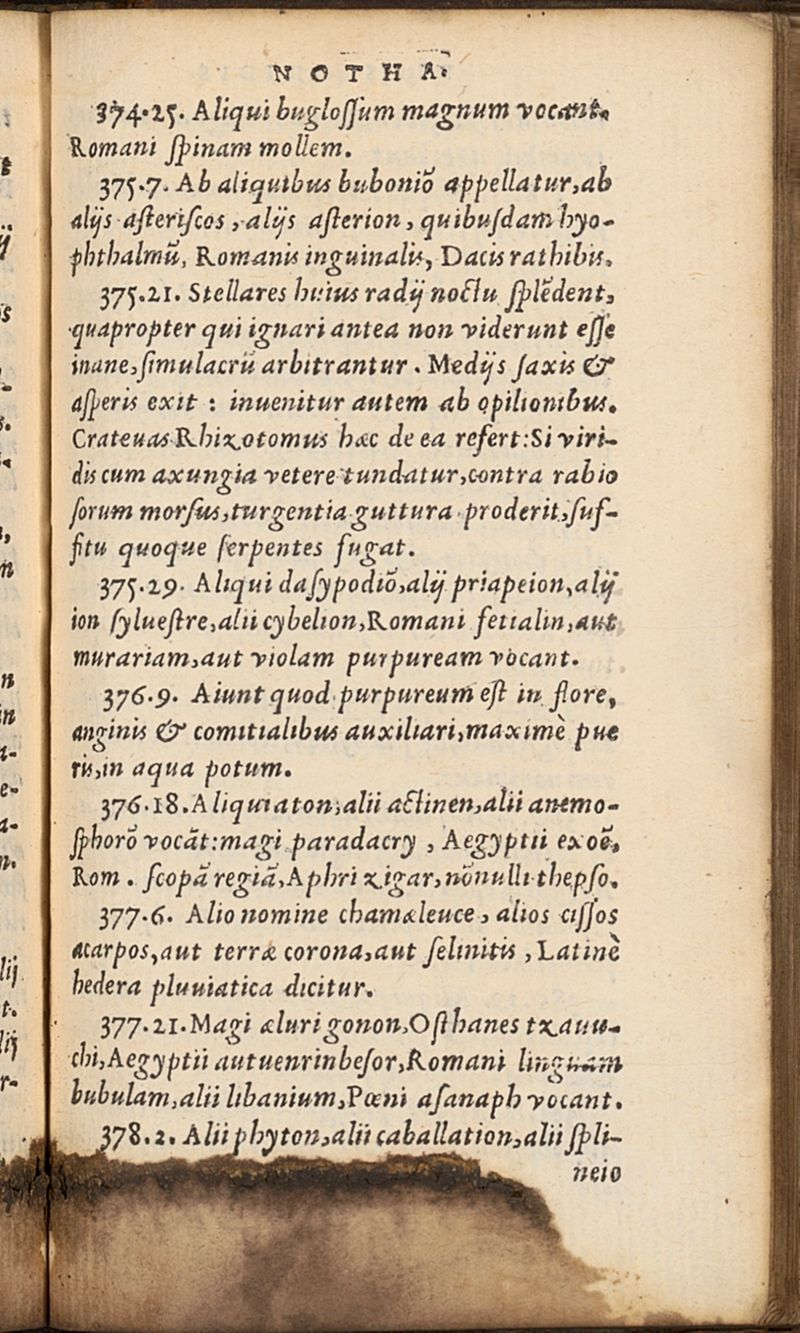 NOTHA.
374.25. Aliqui buglossum magnum vocant.
Romani spinam mollem.
375.7. Ab aliquibus buboniõ appellatur, ab
alijs asteriscos, alijs asterion, quibusdam hyo-
phthalmũ, Romanis inguinalis, Dacis rathibis.
375.21. Stellares huius radij noctu splẽdent,
quapropter qui ignari antea non viderunt esse
inane, simulacrũ arbitrantur. Medijs saxis &
asperis exit : inuenitur autem ab opilionibus.
Crateuas Rhizotomus hæc de ea refert: Si viri-
dis cum axungia vetere tundatur, contra rabio
sorum morsus, turgentia guttura proderit, suf-
fitu quoque serpentes fugat.
375.29. Aliqui dasypodiõ, alij priapeion, alij
ion syluestre, alii cybelion, Romani setialin, aut
murariam, aut violam purpuream vocant.
376.9. Aiunt quod purpureum est in flore,
anginis & comitialibus auxiliari, maximè pue
ris, in aqua potum.
376.18. Aliqui aton, alii actinen, alii anemo-
sphorõ vocãt: magi paradacry, Aegyptii exoẽ,
Rom. scopã regiã, Aphri zigar, nõnulli thepso.
377.6. Alio nomine chamæleuce, alios cissos
acarpos, aut terræ corona, aut selinitis, Latinè
hedera pluuiatica dicitur.
377.21. Magi æluri gonon, Osthanes tzauu-
chi, Aegyptii autuenrinbesor, Romani linguam
bubulam, alii libanium, Pœni asanaph vocant.
378.2. Alii phyton, alii caballation, alii spli-
neio